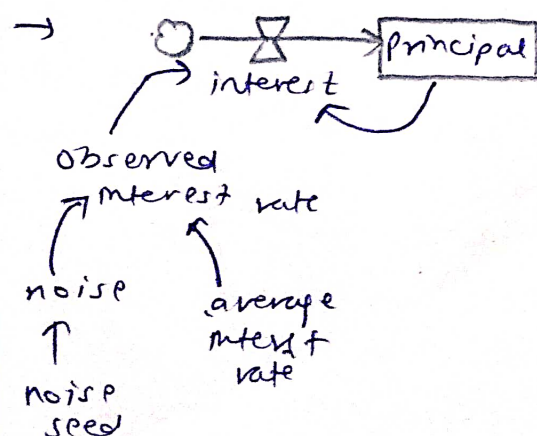 Principal
interest
observed
interest rate
noise
average
interest
rate
noise
seed